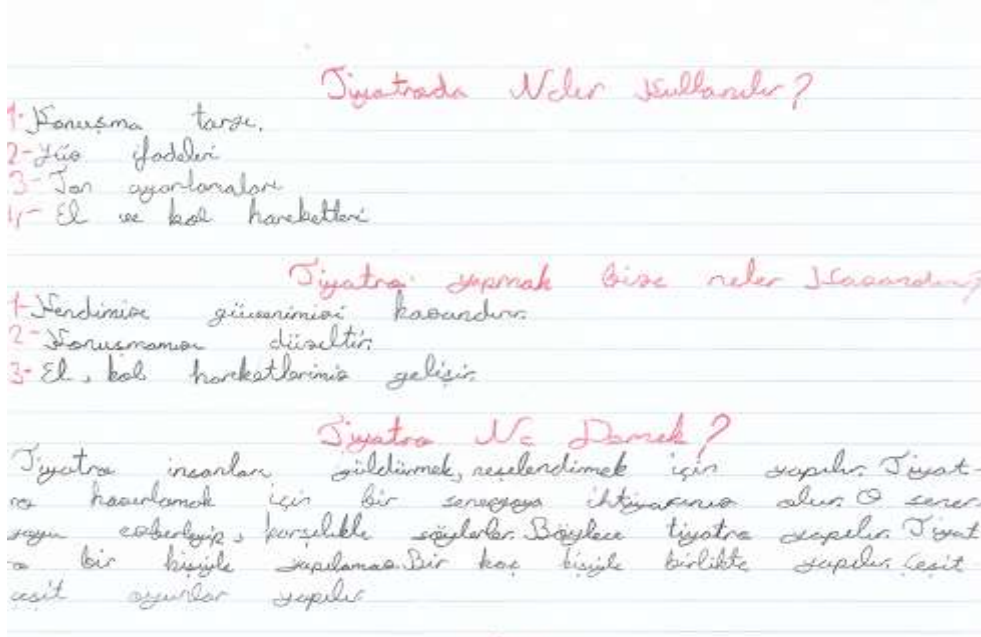 Tiyatroda Neler Kullanılır?
1- Konuşma tarzı.
2- Yüz ifadeleri
3- Ton ayarlamaları
4- El ve kol hareketleri
Tiyatro yapmak bize neler Kazandırır?
1- Kendimize güvenimizi kazandırır.
2- Konuşmamızı düzeltir.
3- El, kol hareketlerimiz gelişir.
Tiyatro Ne Demek?
Tiyatro insanları güldürmek, neşelendirmek için yapılır. Tiyat-
ro hazırlamak için bir senaryoya ihtiyacımız olur. O senar-
yoyu ezberleyip, karşılıklı söylerler. Böylece tiyatro yapılır. Tiyat
ro bir kişiyle yapılamaz. Bir kaç kişiyle birlikte yapılır. Çeşit
çeşit oyunlar yapılır